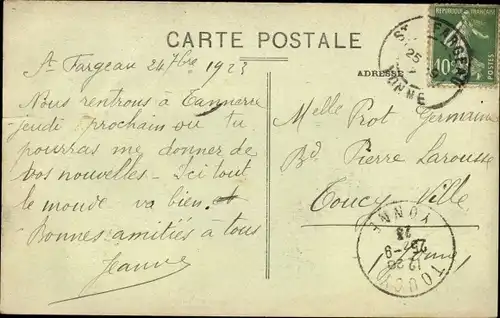 CARTE POSTALE
ADRESSE
RÉPUBLIQUE FRANÇAISE
10c
POSTES
ST FARGEAU
25
YONNE
St Fargeau 24 7bre 1923
Nous rentrons à Tannerre
jeudi prochain où tu
pourras me donner de
vos nouvelles - Ici tout
le monde va bien. et
Bonnes amitiés à tous
Jeanne
Melle Prot Germaine
Bd Pierre Larousse
Toucy Ville
(Yonne)
TOUCY
12 20
25-9
23
YONNE